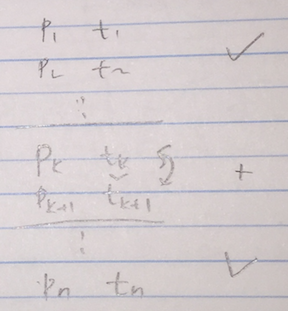 p₁ t₁ ✓
p₂ t₂
⋮
pₖ tₖ +
pₖ₊₁ tₖ₊₁
⋮
pₙ tₙ ✓